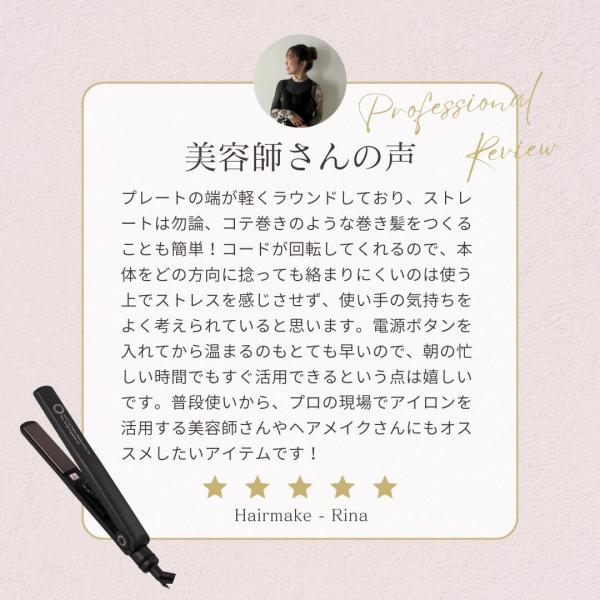 Professional
Review
美容師さんの声
プレートの端が軽くラウンドしており、ストレ
ートは勿論、コテ巻きのような巻き髪をつくる
ことも簡単！コードが回転してくれるので、本
体をどの方向に捻っても絡まりにくいのは使う
上でストレスを感じさせず、使い手の気持ちを
よく考えられていると思います。電源ボタンを
入れてから温まるのもとても早いので、朝の忙
しい時間でもすぐ活用できるという点は嬉しい
です。普段使いから、プロの現場でアイロンを
活用する美容師さんやヘアメイクさんにもオス
スメしたいアイテムです！
Hairmake - Rina